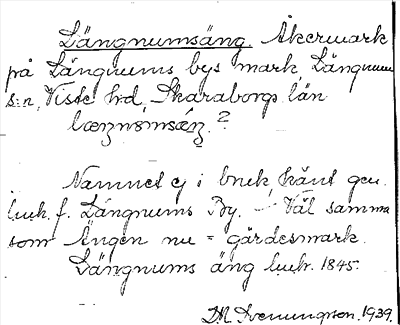 Längnumsäng. Åkermark
på Längnums bys mark, Längnum
s:n, Viste hd, Skaraborgs län
læŋnømsæŋ?
Namnet ej i bruk, känt gen.
luh. f. Längnums By. — Väl samma
som Ängen nu = gärdesmark.
Längnums äng luh. 1845.
Svenungson. 1939.